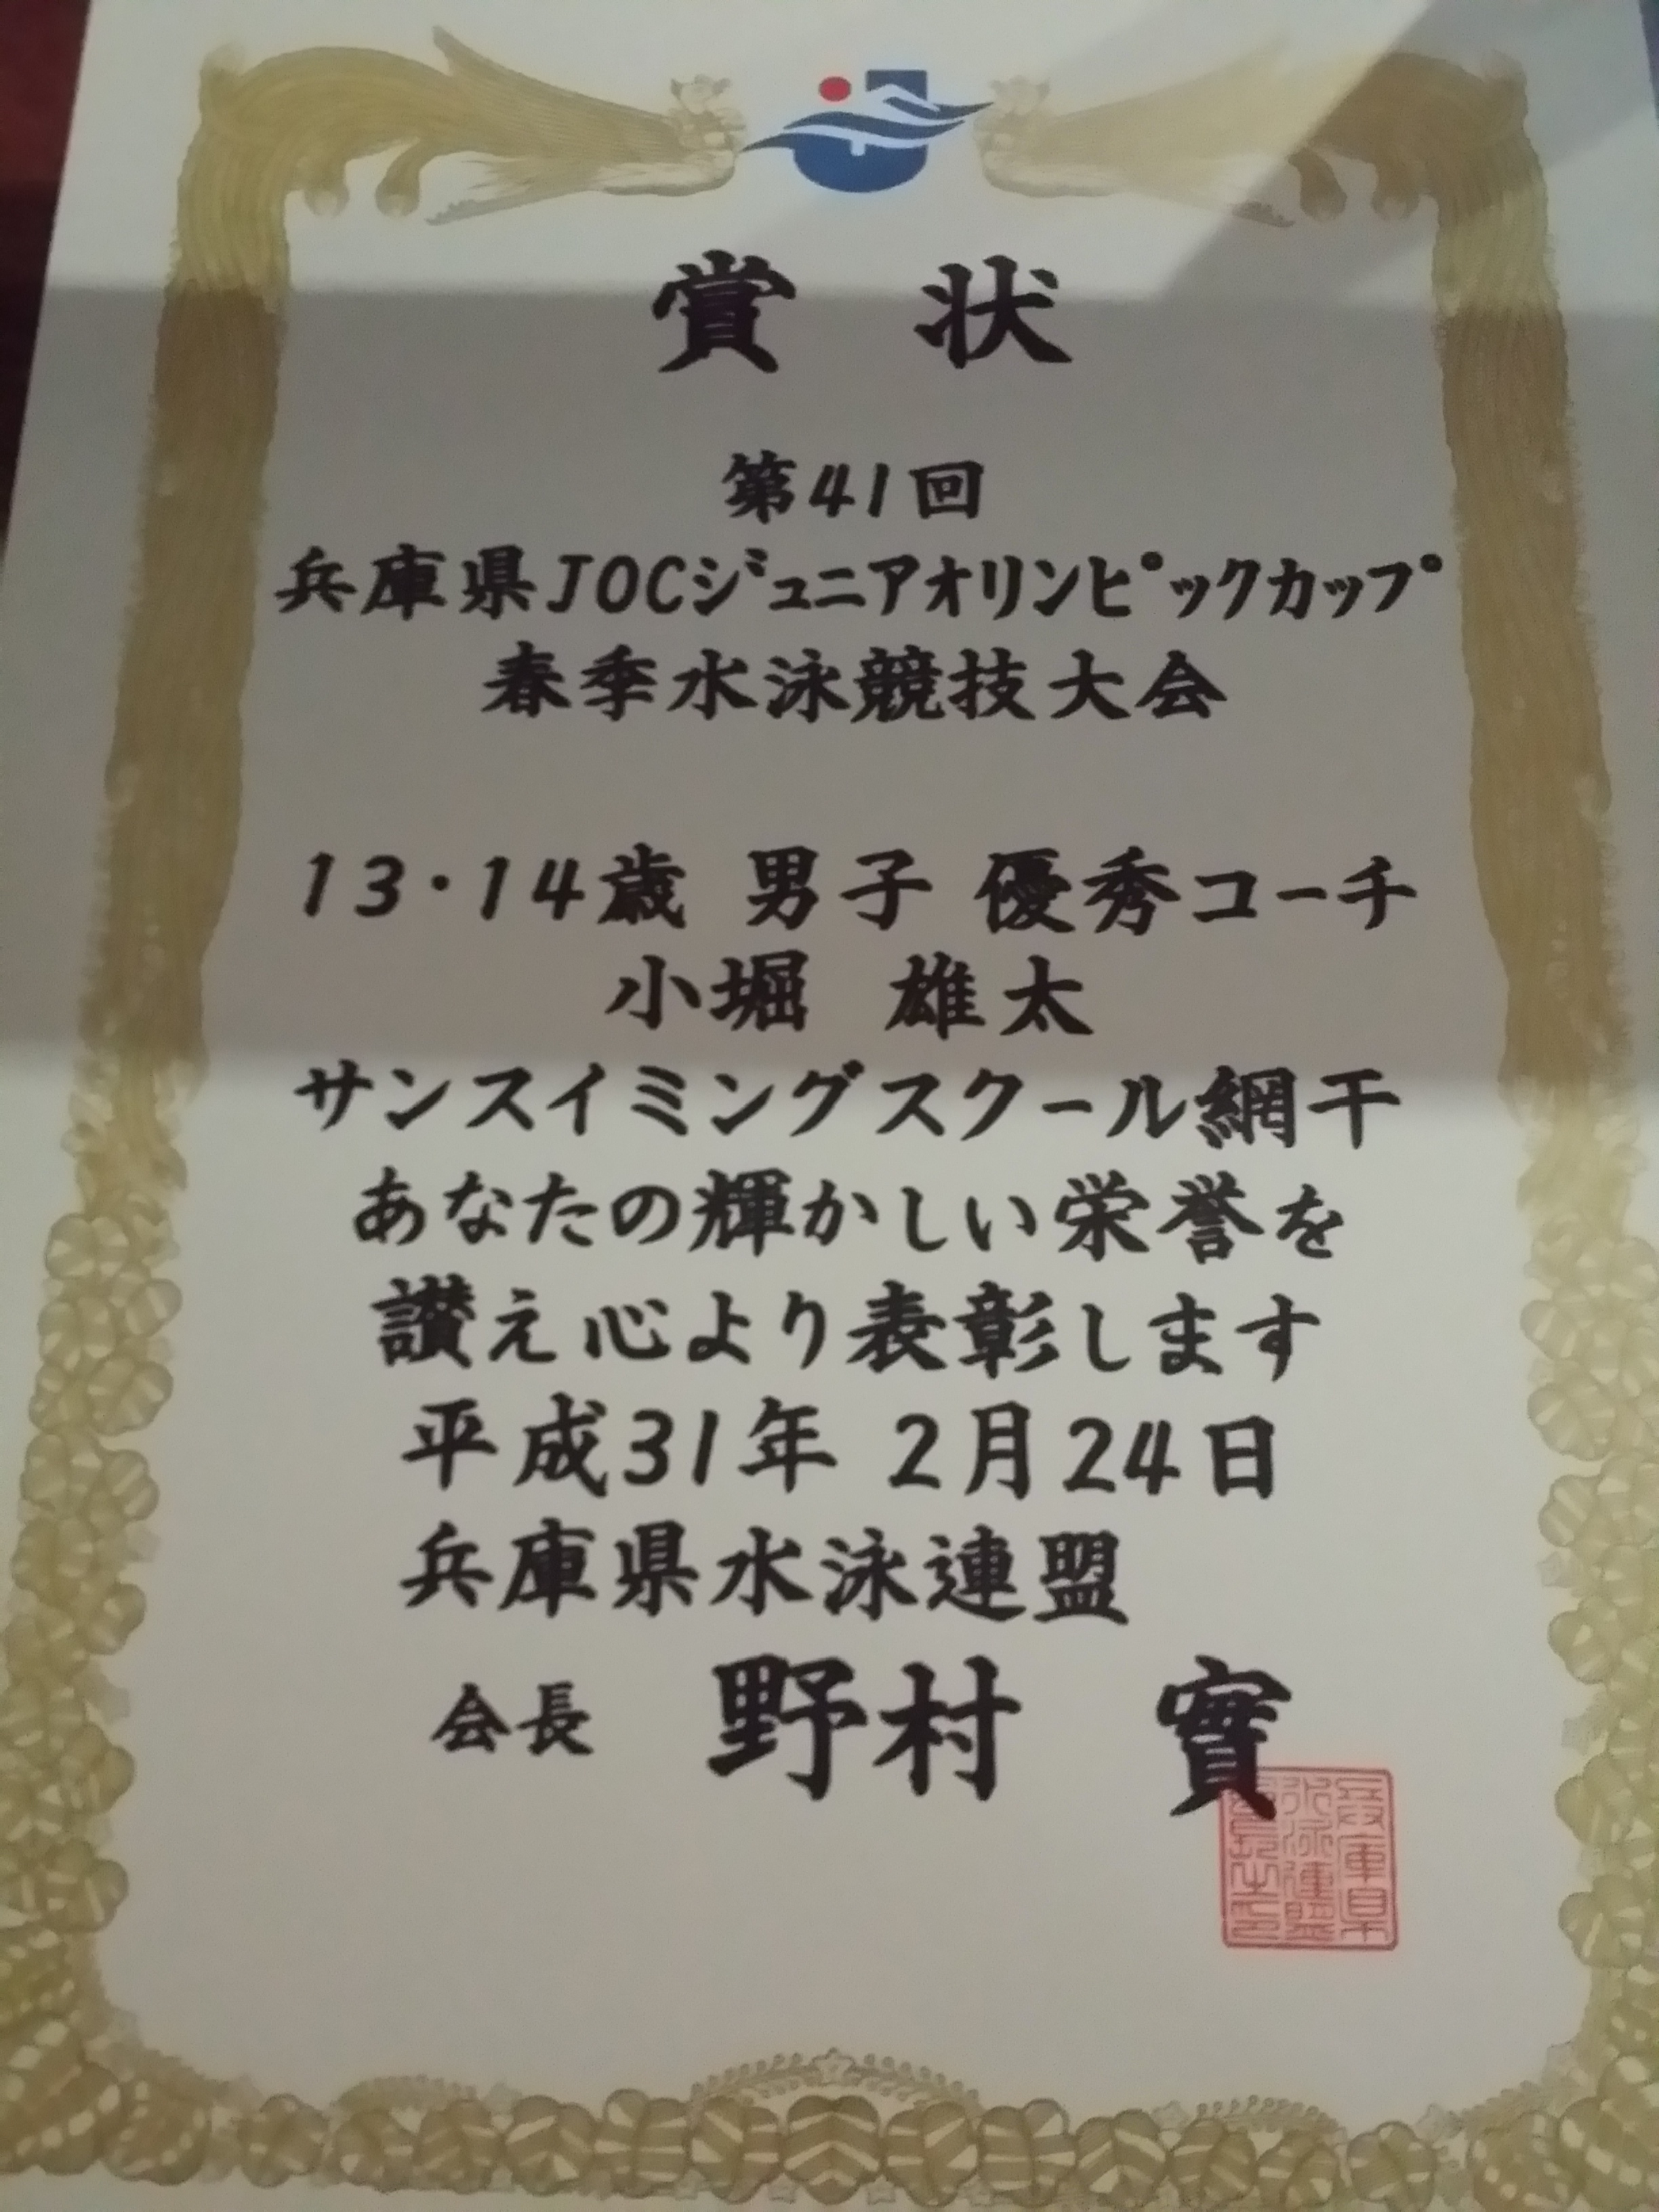 賞 状
第41回
兵庫県JOCジュニアオリンピックカップ
春季水泳競技大会
13・14歳 男子 優秀コーチ
小堀 雄太
サンスイミングスクール網干
あなたの輝かしい栄誉を
讃え心より表彰します
平成31年 2月24日
兵庫県水泳連盟
会長 野村 實
兵庫県
水泳連盟
会長之印